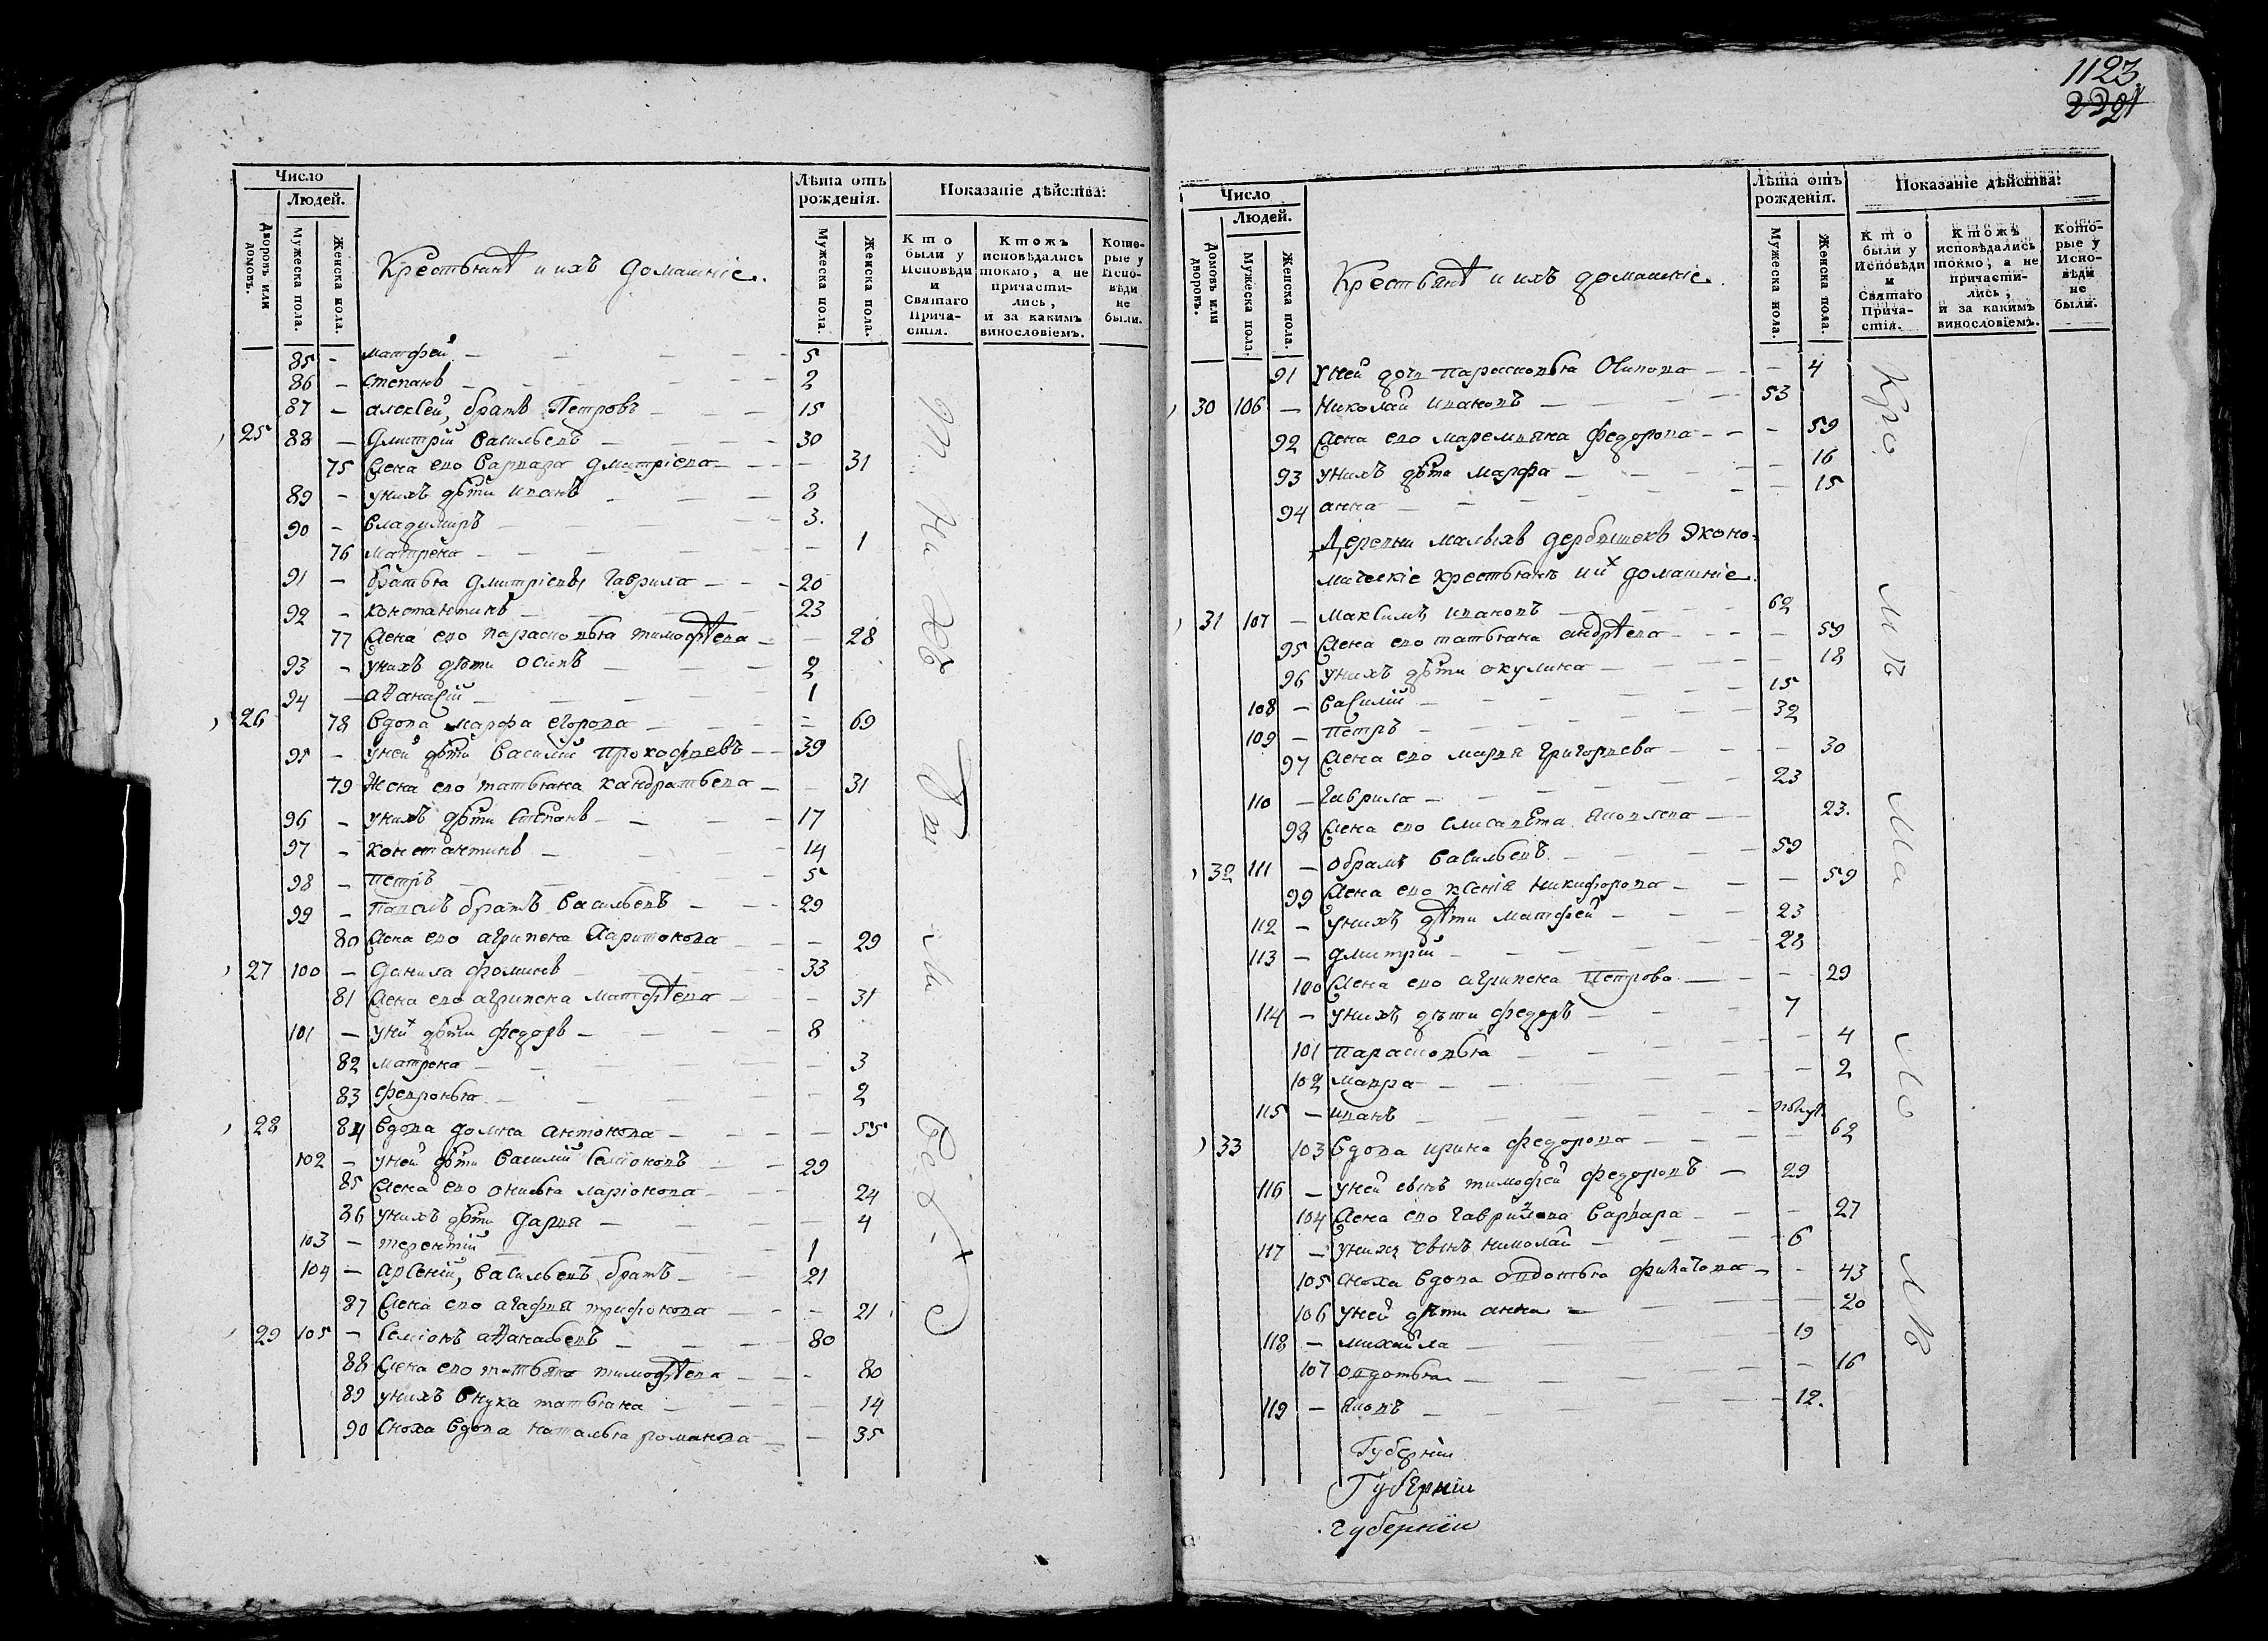 Число
Людей.
Дворовъ или домовъ.
Мужеска пола.
Женска пола.
Крестьянѣ и ихъ домашніе.
Лѣта отъ рожденія.
Мужеска пола.
Женска пола.
Показаніе дѣйства:
Кто были у Исповѣди и Святаго Прича-стія.
Ктожъ исповѣдались токмо, а не причасти-лись, и за какимъ винословіемъ.
Кото-рые у Испо-вѣди не были.
85 - матфей 5
86 - степанъ 2
87 - алексей, братъ Петровъ 15
25 88 - дмитрій васильевъ 30
75 жена ево варвара дмитріева 31
89 - унихъ дѣти иванъ 8
90 - владимиръ 3.
76 матрена 1
91 - братья дмитріевы гаврила 20
92 - константинъ 23
77 жена ево парасковья тимофѣева 28
93 - унихъ дѣти осипъ 2
94 - аѳанасій 1
26 78 вдова марфа егорова 69
95 - уней дѣти василий прокофиевъ 39
79 жена ево татьяна кандратьева 31
96 - унихъ дѣти степанъ 17
97 - константинъ 14
98 - петръ 5
99 - павелъ братъ васильевъ 29
80 жена ево агрипена харитонова 29
27 100 - данила фоминъ 33
81 жена ево агрипена матфѣева 31
101 - уних дѣти федоръ 8
82 матрена 3
83 февронья 2
28 84 вдова домна антонова 55
102 - уней дѣти василий семіоновъ 29
85 жена ево онисья ларіонова 24
86 унихъ дѣти дарья 4
103 - терентій 1
104 - арсеній, васильевъ братъ 21
87 жена ево агафия трифонова 21
29 105 - семіонъ аѳанасьевъ 80
88 жена ево татьяна тимофѣева 80
89 унихъ внука татьяна 14
90 сноха вдова наталья романова 35
1123
Число
Людей.
Домовъ или дворовъ.
Мужеска пола.
Женска пола.
Крестьянѣ и ихъ домашніе.
Лѣта отъ рожденія.
Мужеска пола.
Женска пола.
Показаніе дѣйства:
Кто были у Исповѣди и Святаго Прича-стія.
Ктожъ исповѣдались токмо, а не причасти-лись, и за какимъ винословіемъ.
Кото-рые у Испо-вѣди не были.
91 уней дочь парасковья Осипова 4
30 106 - Николай ивановъ 53
92 жена ево маремьяна федорова 59
93 унихъ дѣти марфа 16
94 анна 15
Деревни малыхъ дербышекъ Эконо-
мическіе крестьянъ и их домашніе.
31 107 - максимъ ивановъ 62
95 жена ево татьяна андрѣева 59
96 унихъ дѣти окулина 18
108 - василій 15
109 - петръ 32
97 жена ево марья григориева 30
110 - гаврила 23
98 жена ево елисавета яковлева 23.
32 111 - обрамъ васильевъ 59
99 жена ево ксенія никифорова 59
112 - унихъ дѣти матфей 23
113 - дмитрій 28
100 жена ево агрипена Петрова 29
114 - унихъ дѣти федоръ 7
101 парасковья 4
102 мавра 2
115 - иванъ
33 103 вдова ирина федорова 62
116 - уней сынъ тимофей федоровъ 29
104 жена ево гаврилова варвара 27
117 - унихъ сынъ николай 6
105 сноха вдова овдотья фикагова 43
106 уней дѣти анна 20
118 - михайла 19
107 овдотья 16
119 - яковъ 12.
Губерніи
Губерніи
губерніи